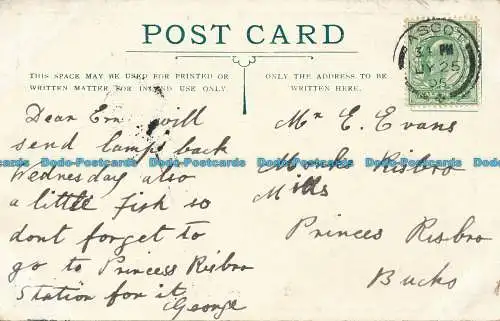 POST CARD
THIS SPACE MAY BE USED FOR PRINTED OR
WRITTEN MATTER FOR INLAND USE ONLY.
ONLY THE ADDRESS TO BE
WRITTEN HERE.
ASCOT
PM
25
05
Dear Ern will
send lamps back
Wednesday also
a little fish so
dont forget to
go to Princess Risbro
Station for it
George
Mr E. Evans
Monks Risbro
Mills
Princes Risbro
Bucks
Dodo-Postcards Dodo-Postcards Dodo-Postcards Dodo-Postcards Dodo-Postcards